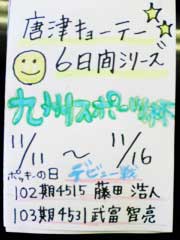 唐津キョーテー
6日間シリーズ
九州スポーツ杯
11/11 〜 11/16
ポッキーの日 デビュー戦
102期4515 藤田 浩人
103期4531 武富 智亮